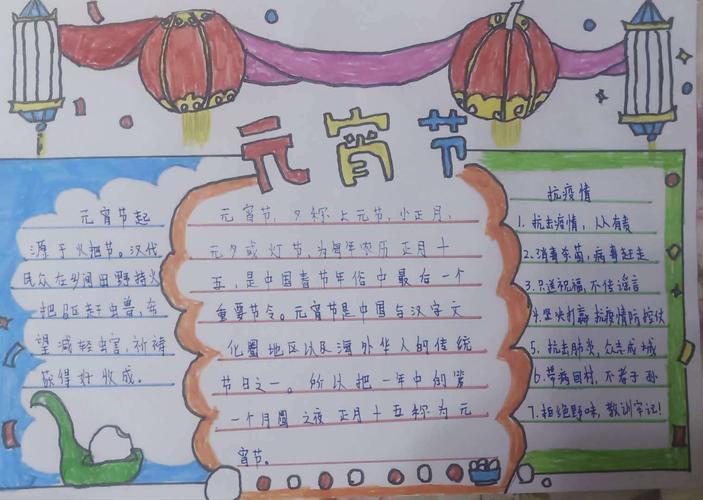 元宵节
元宵节起
源于火把节。汉代
民众在乡间田野持火
把驱赶虫兽，
望减轻虫害，祈祷
获得好收成。
元宵节，又称上元节，小正月，
元夕或灯节，为每年农历正月十
五，是中国春节年俗中最后一个
重要节令。元宵节是中国与汉字文
化圈地区以及海外华人的传统
节日之一。所以把一年中的第
一个月圆之夜正月十五称为元
宵节。
抗疫情
1.抗击疫情，人人有责
2.消毒杀菌，病毒赶走
3.只送祝福，不传谣言
4.坚决打赢抗疫情防控仗
5.抗击肺炎，众志成城
6.带病回村，不孝子孙
7.拒绝野味，教训牢记！